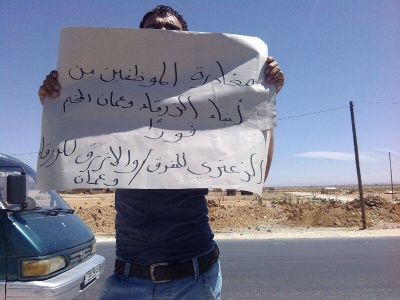 مغادرة الموظفين من
أبناء الزرقاء وعمان المخيم
فورًا
الزعتري للمفرق / والازرق للزرقاء
وعمان